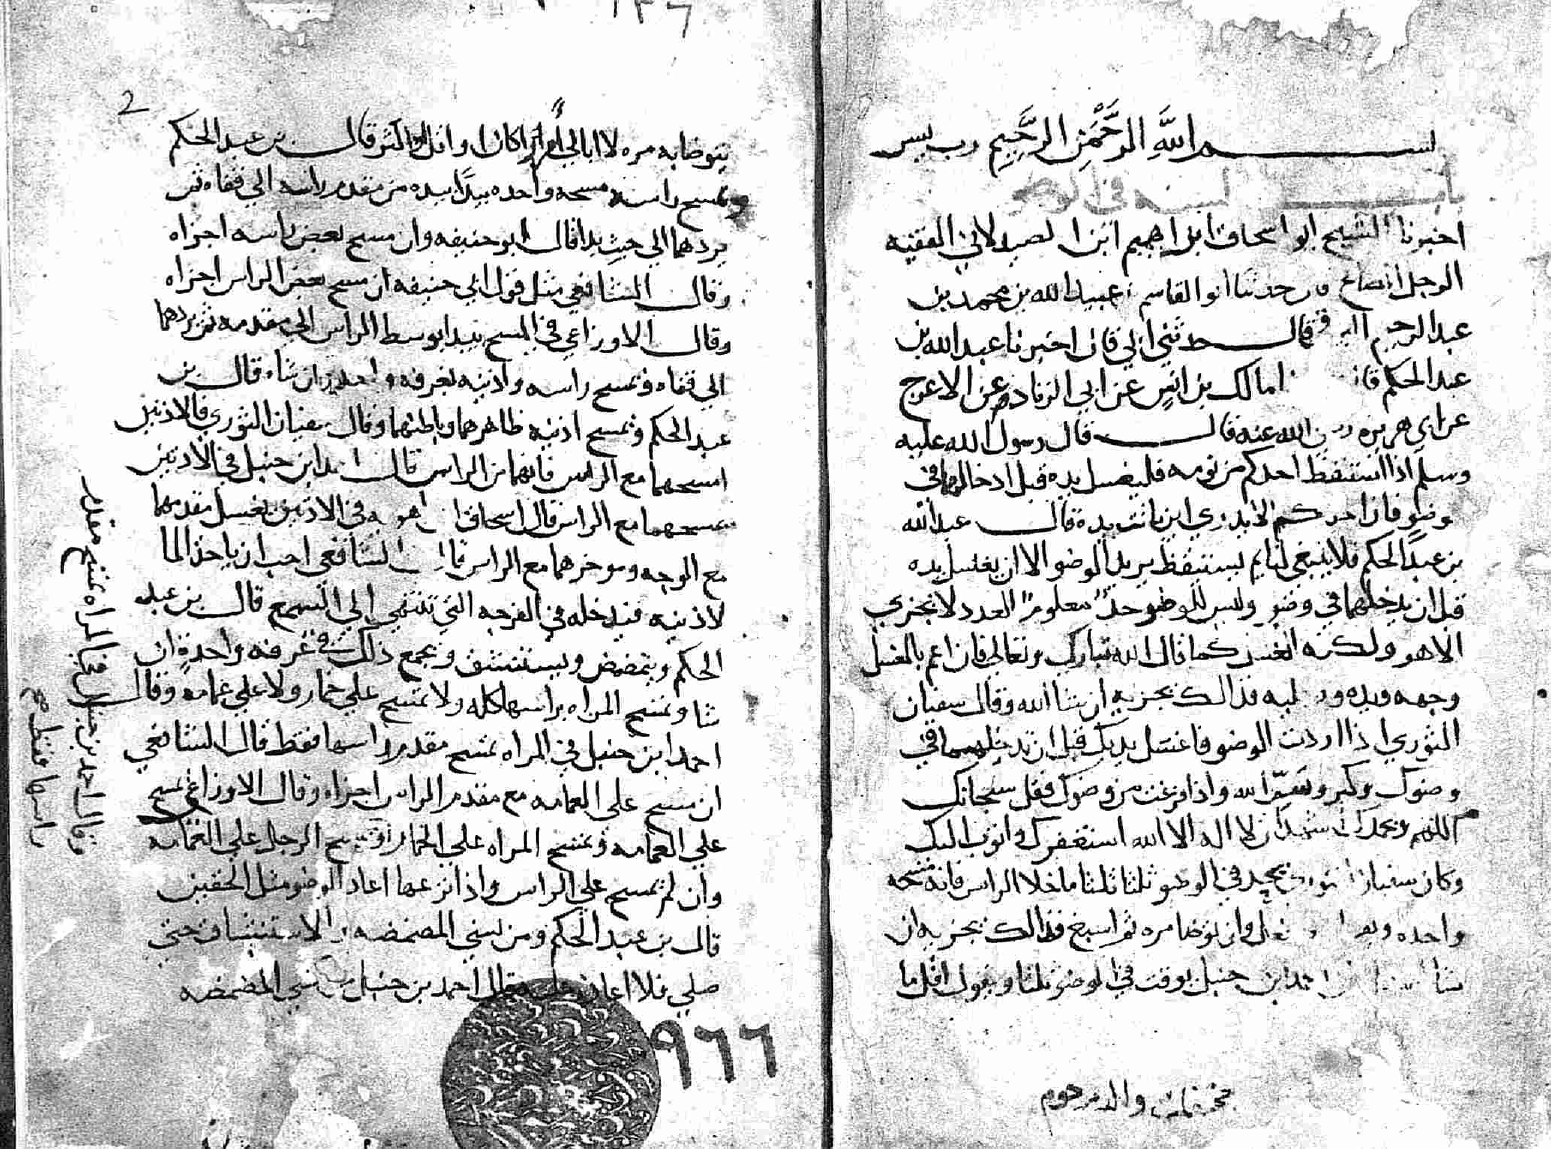 بسم اللَّهِ الرَّحْمَنِ الرَّحِيمِ رب يسر
باب السنه في الوضو
اخبرنا الشيخ ابو اسحاق ابراهيم ابن الفقيه
الرجل الصالح قال حدثنا ابو القاسم عبيد الله بن محمد بن
عبد الرحيم قال حدثني ابي قال اخبرنا عبد الله بن
عبد الحكم قال مالك بن انس عن ابي الزناد عن الاعرج
عن ابي هريره رضي الله عنه قال قال رسول الله عليه
وسلم اذا استيقظ احدكم من نومه فليغسل يده قبل ادخالهما في
وضوه فان احدكم لا يدري اين باتت يده قال عبد الله
بن عبد الحكم فلا ينبغي لنايم يستيقظ يريد الوضو الا ان يغسل يده
قبل ان يدخلهما في وضوه وليس للوضو حد معلوم العدد لا يجزي
الا هو ولكنه الغسل كما قال الله تبارك وتعالى فان اعم بالغسل
وجهه ويده ورجليه فذالك يجزيه ان شا الله وقال سفيان
الثوري اذا اردت الوضو فاغسل يديك قبل ان تدخلهما في
وضوك وكبر وسم الله واذا فرغت من وضوك فقل سبحانك
اللهم وبحمدك اشهد ان لا اله الا الله استغفرك واتوب اليك
وكان سفيان الثوري في الوضو ثلثا ثلثا ما خلا الراس فانه مسحه
واحده وان توضا مره ثم اسبغ فذالك يجزيه ان
شا الله احمد ابن حنبل يوقت في الوضو ثلثا ويقول اقل ما
والد مرحوم
١٣٦
2
يتوضا به مره لا ابالي كان او اقل او اكثر قال بن عبد الحكم
ويمسح راسه مسحه واحده يبدا بيده من مقدم راسه الي قفاه ثم
يردهما الي حيث بدا قال ابو حنيفه وان مسح بعض راسه اجزاه
وقال الشافعي مثل قول ابي حنيفه ان مسح بعض الراس اجزاه
وقال الاوزاعي في المسح يبدا بوسط الراس الي مقدمه ثم يردهما
الي قفاه ويمسح راسه واذنيه بغرفه واحده ان شاء قال بن
عبد الحكم ويمسح اذنيه ظاهرهما وباطنهما وقال سفيان الثوري فالاذنين
امسحهما مع الراس فانهما من الراس قال احمد ابن حنبل في الاذنين
يمسحهما مع الراس قال اسحاق في الاذنين يغسل مقدمهما
مع الوجه وموخرهما مع الراس قال الشافعي احب ان ياخذ الما
لاذنيه فيدخله في الفرجه التي تنتهي الي السمع قال بن عبد
الحكم ويتمضمض ويستنشق ويجمع ذلك في غرفه واحدة ان
شا ويمسح المراه براسها كله ولا يمسح علي خمار ولا علي عمامه وقال
احمد ابن حنبل في المراه تمسح مقدم راسها فقط قال الشافعي
ان مسح على العمامه مع مقدم الراس اجزاه وقال الاوزاعي يمسح
علي العمامه وتمسح المراه علي الخمار ويمسح الرجل علي العمامه
وان لم يمسح علي الراس واذا نزعها اعاد الوضو مثل الخفين
قال بن عبد الحكم ومن نسي المضمضه والاستنشاق حتي
صلي فلا اعاده عليه وقال احمد بن حنبل من نسي المضمضه
وقال احمد بن حنبل في المراه تمسح مقدم
راسها فقط صح
٩٦٦